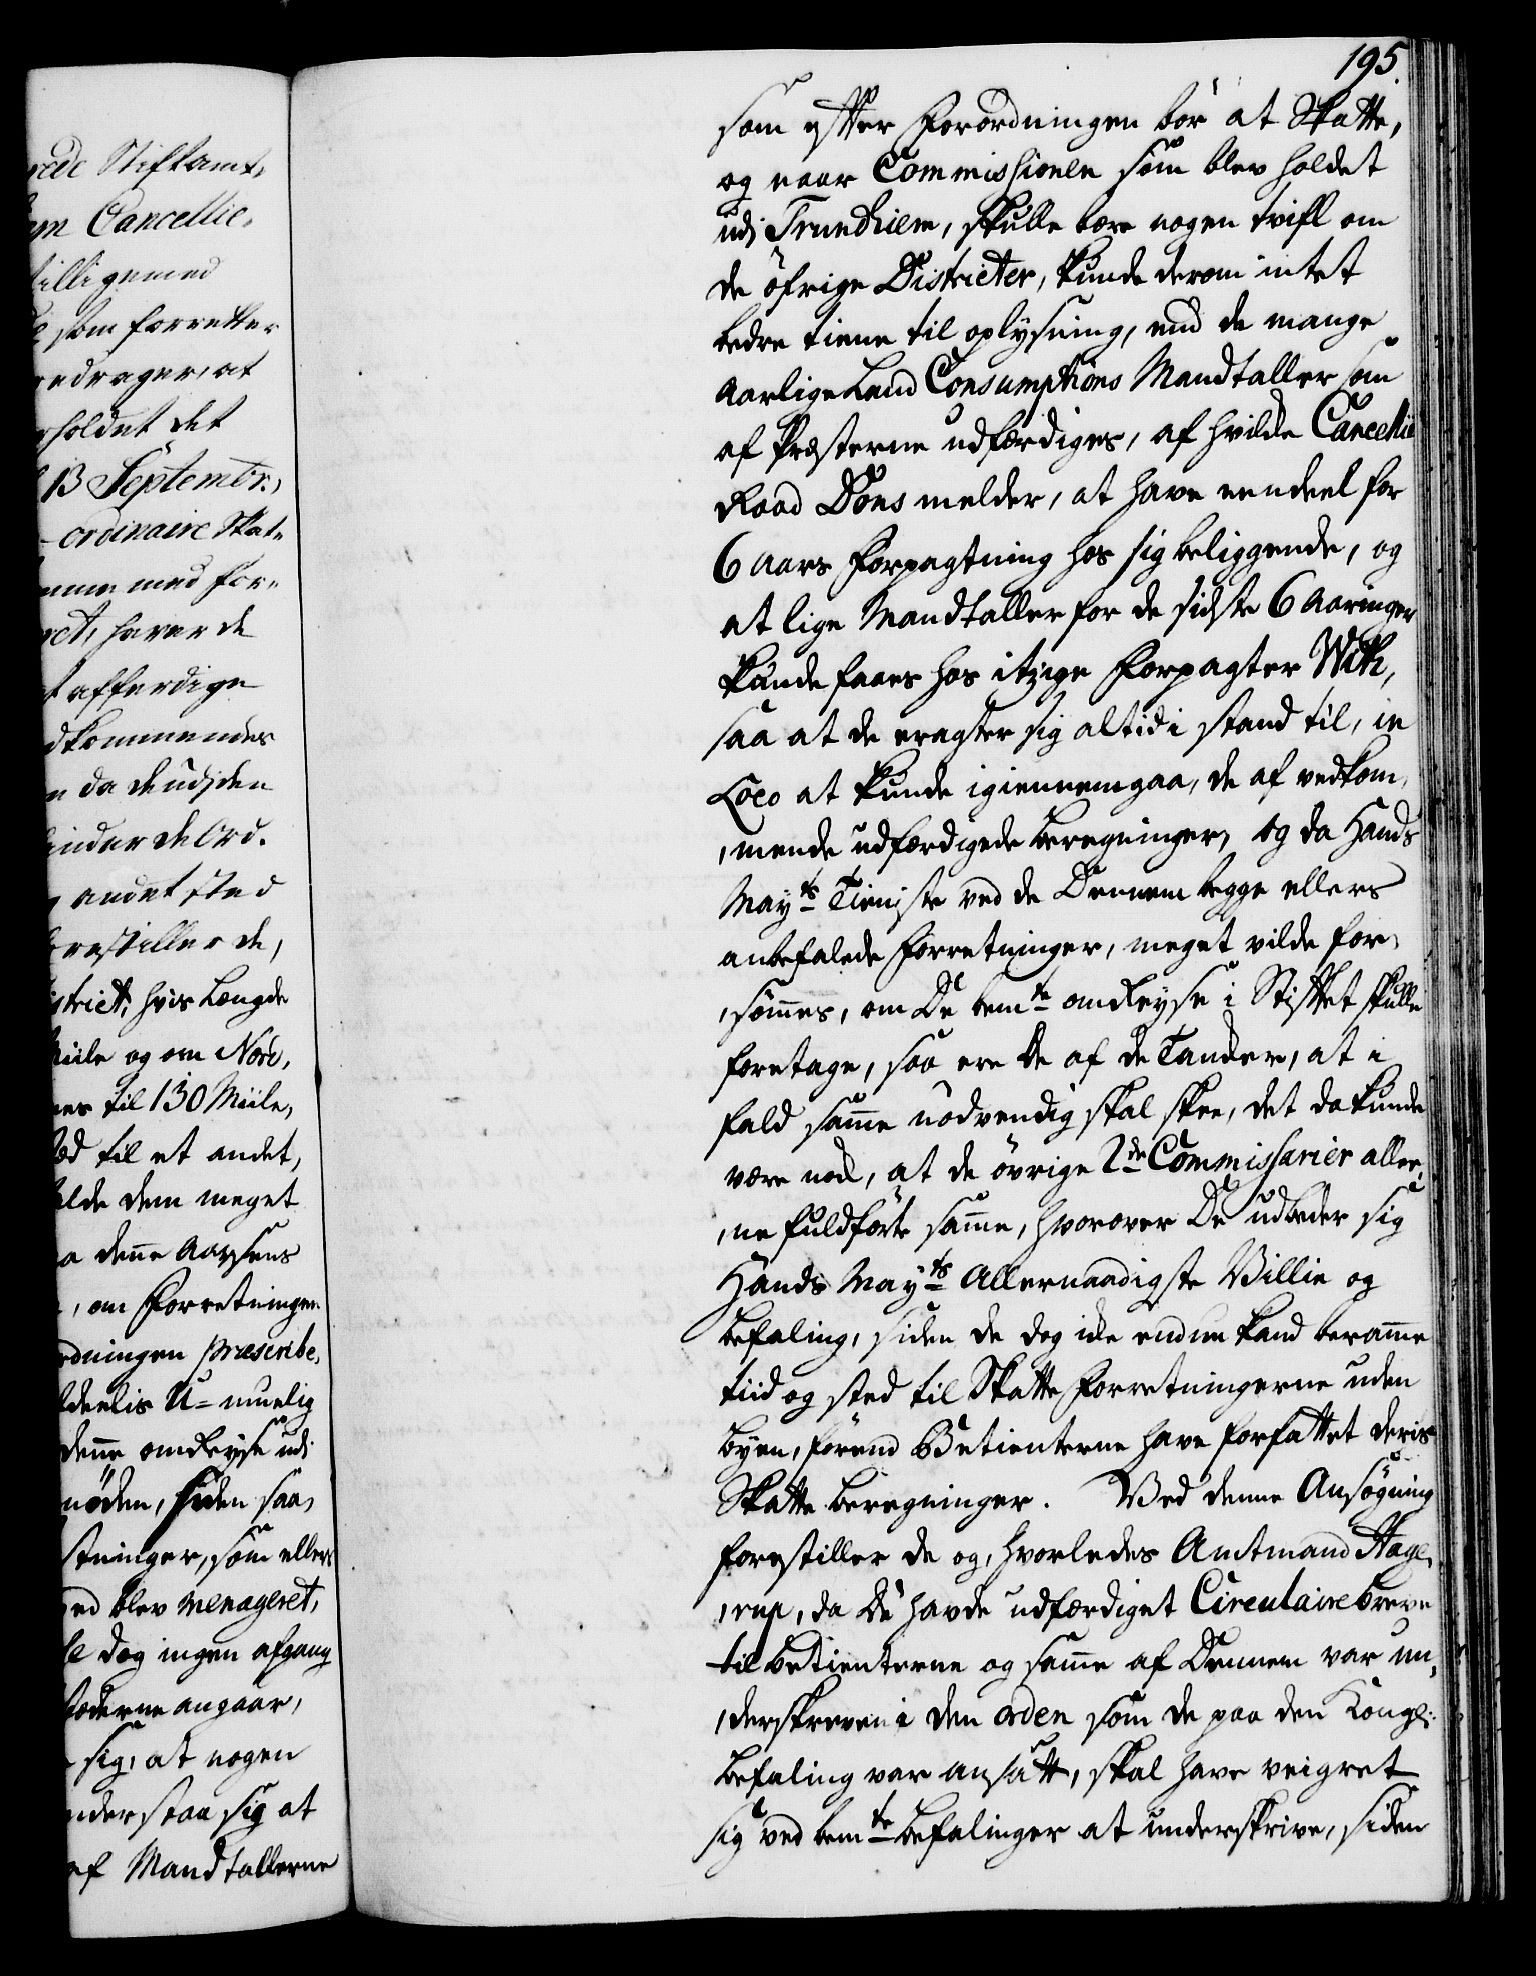 rede Stiftamt,
em Cancellie,
tilligemed
som forretter
edrager, at
rholdet det
13 Septembr.,
ordinaire Skat,
mme med for,
ret, haver de
t afferdige
dkommendes
n da de udj den
inder de Ord.
andet sted
restiller de,
strict, hvis Længde
Miile og om Nord,
nes til 130 Miile,
ed til et andet,
ilde dem meget
a denne Aarsens
, om Forretningen
rdningen præscribe,
ldeelis U-muelig
denne omReyse udi
nøden, siden saa,
etninger, som ellers
ed blev menageret,
le dog ingen afgang
tæderne angaar,
sig, at nogen
nderstaa sig at
af Mandtallerne
195.
som efter Forordningen bør at Skatte,
og naar Commissionen som blev holdet
udj Trundhiem, skulle bære nogen tvifl om
de øfrige Districter, kunde derom intet
bedre tiene til oplysning, end de mange
Aarlige Land Consumptions Mandtaller som
af Præsterne udfærdiges, af hvilcke Cancellie
Raad Dons melder, at have eendeel for
6 Aars Forpagtning hos sig beliggende, og
at lige Mandtaller for de sidste 6 Aaringer
kunde faaes hos itzige Forpagter With,
saa at de eragter sig altid i stand til, in
Loco at kunde igiennemgaa, de af vedkom,
,mende udfærdigede beregninger, og da Hands
Mayts Tieniste ved de Dennem begge ellers
anbefalede Forretninger, meget vilde for,
,sømmes, om De bemte omReyse i Stiftet skulle
foretage, saa ere De af de Tancker, at i
fald samme nødvendig skal skee, det da kunde
være nock, at de øvrige 2de Commissarier alle,
,ne fuldførte samme, hvorover De udbeder sig
Hands Mayts Allernaadigste Villie og
befaling, siden de dog icke endnu kand beramme
tiid og sted til Skatte Forretningerne uden
byen, førend Betienterne have forfattet deris
Skatte beregninger. Ved denne Ansøgning
forestiller de og, hvorledes Amtmand Hage,
,rup, da De havde udfærdiget Circulaire breve
til betienterne og samme af Dennem var un,
,derskreven i den orden som de paa den Kongl:
befaling var ansatt, skal have veigret
sig ved bemte befalinger at underskrive, siden